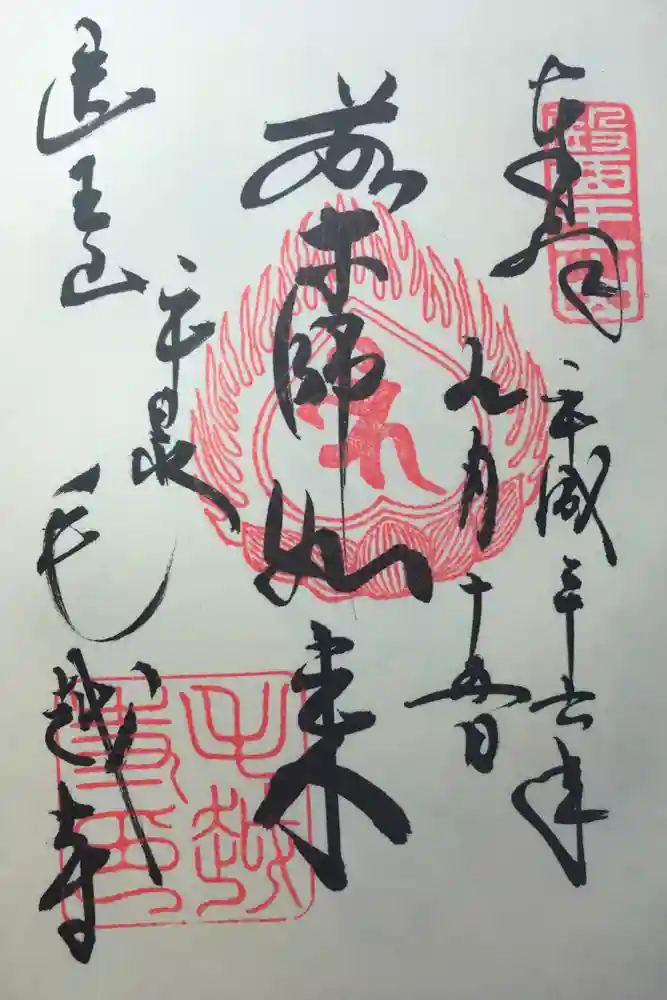 奉拝
平成二十六年
九月十五日
薬師如来
医王山
平泉
毛越寺
毛越
寺印